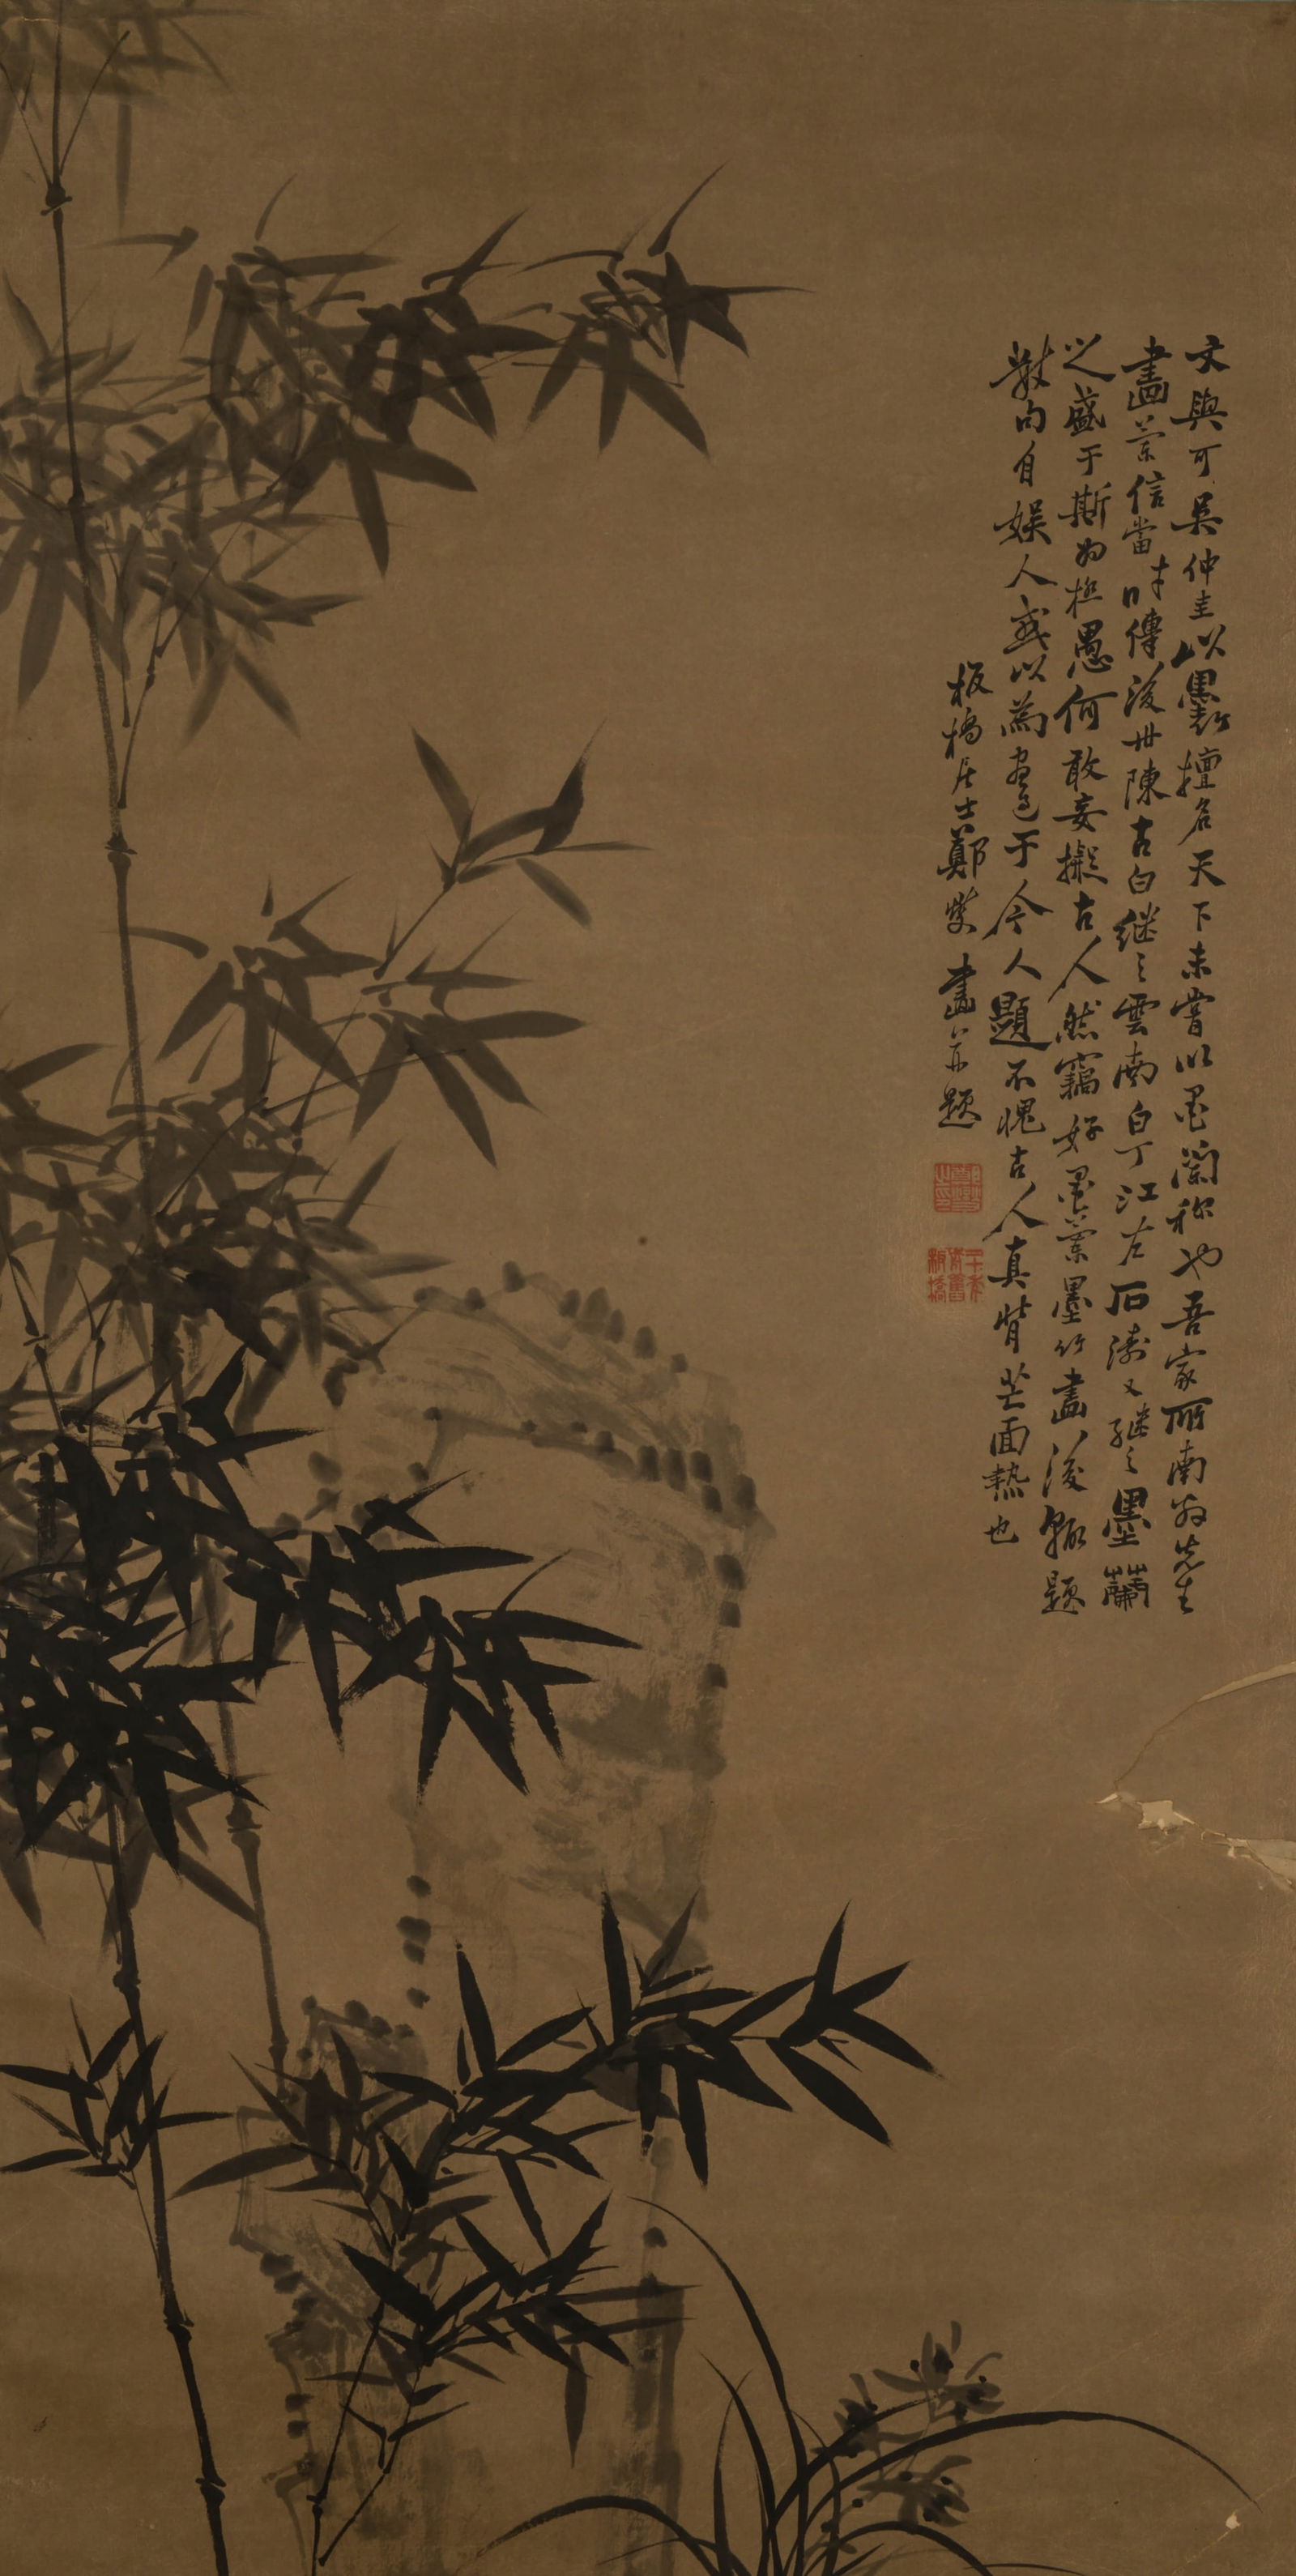 文與可吳仲圭以墨竹擅名天下未嘗以墨蘭称也吾家所南翁先生
畫蘭信當时傳後世陳古白継之雲南白丁江左石濤又継之墨蘭
之盛于斯为極愚何敢妄擬古人然竊好墨蘭墨竹畫後輒題
數句自娱人或以為者于今人題不愧古人真背芒面熱也
板橋居士鄭燮畫并題
鄭燮之印
二十年前舊板橋